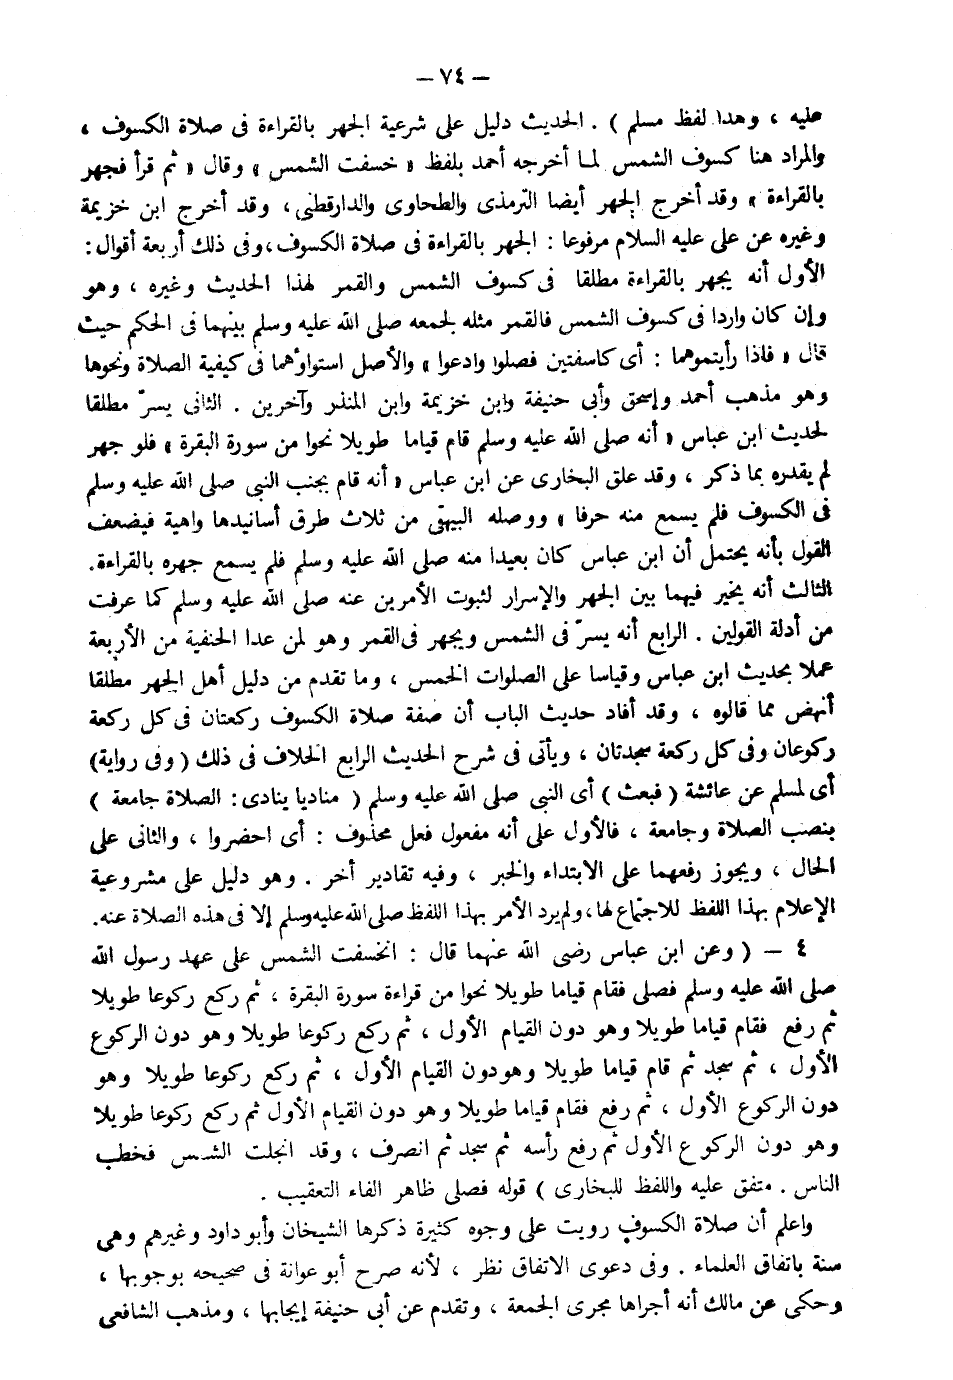 — ٧٤ —
عليه ، وهذا لفظ مسلم ) . الحديث دليل على شرعية الجهر بالقراءة فى صلاة الكسوف ،
والمراد هنا كسوف الشمس لما أخرجه أحمد بلفظ « خسفت الشمس » وقال « ثم قرأ فجهر
بالقراءة » وقد أخرج الجهر أيضا الترمذى والطحاوى والدارقطنى ، وقد أخرج ابن خزيمة
وغيره عن على عليه السلام مرفوعا : الجهر بالقراءة فى صلاة الكسوف ، وفى ذلك أربعة أقوال :
الأول أنه يجهر بالقراءة مطلقا فى كسوف الشمس والقمر لهذا الحديث وغيره ، وهو
وإن كان واردا فى كسوف الشمس فالقمر مثله لجمعه صلى الله عليه وسلم بينهما فى الحكم حيث
قال « فاذا رأيتموهما : أى كاسفتين فصلوا وادعوا » والأصل استواؤهما فى كيفية الصلاة ونحوها
وهو مذهب أحمد وإسحق وأبى حنيفة وابن خزيمة وابن المنذر وآخرين . الثانى يسرّ مطلقا
لحديث ابن عباس « أنه صلى الله عليه وسلم قام قياما طويلا نحوا من سورة البقرة » فلو جهر
لم يقدره بما ذكر ، وقد علق البخارى عن ابن عباس « أنه قام بجنب النبى صلى الله عليه وسلم
فى الكسوف فلم يسمع منه حرفا » ووصله البيهقى من ثلاث طرق أسانيدها واهية فيضعف
القول بأنه يحتمل أن ابن عباس كان بعيدا منه صلى الله عليه وسلم فلم يسمع جهره بالقراءة .
الثالث أنه يخير فيهما بين الجهر والإسرار لثبوت الأمرين عنه صلى الله عليه وسلم كما عرفت
من أدلة القولين . الرابع أنه يسرّ فى الشمس ويجهر فى القمر وهو لمن عدا الحنفية من الأربعة
عملا بحديث ابن عباس وقياسا على الصلوات الخمس ، وما تقدم من دليل أهل الجهر مطلقا
أنهض مما قالوه ، وقد أفاد حديث الباب أن صفة صلاة الكسوف ركعتان فى كل ركعة
ركوعان وفى كل ركعة سجدتان ، ويأتى فى شرح الحديث الرابع الخلاف فى ذلك ( وفى رواية )
أى لمسلم عن عائشة ( فبعث ) أى النبى صلى الله عليه وسلم ( مناديا ينادى : الصلاة جامعة )
بنصب الصلاة وجامعة ، فالأول على أنه مفعول فعل محذوف : أى احضروا ، والثانى على
الحال ، ويجوز رفعهما على الابتداء والخبر ، وفيه تقادير أخر . وهو دليل على مشروعية
الإعلام بهذا اللفظ للاجتماع لها ، ولم يرد الأمر بهذا اللفظ صلى الله عليه وسلم إلا فى هذه الصلاة عنه .
٤ — ( وعن ابن عباس رضى الله عنهما قال : انخسفت الشمس على عهد رسول الله
صلى الله عليه وسلم فصلى فقام قياما طويلا نحوا من قراءة سورة البقرة ، ثم ركع ركوعا طويلا
ثم رفع فقام قياما طويلا وهو دون القيام الأول ، ثم ركع ركوعا طويلا وهو دون الركوع
الأول ، ثم سجد ثم قام قياما طويلا وهو دون القيام الأول ، ثم ركع ركوعا طويلا وهو
دون الركوع الأول ، ثم رفع فقام قياما طويلا وهو دون القيام الأول ثم ركع ركوعا طويلا
وهو دون الركوع الأول ثم رفع رأسه ثم سجد ثم انصرف ، وقد انجلت الشمس فخطب
الناس . متفق عليه واللفظ للبخارى ) قوله فصلى ظاهر الفاء التعقيب .
واعلم أن صلاة الكسوف رويت على وجوه كثيرة ذكرها الشيخان وأبو داود وغيرهم وهى
سنة باتفاق العلماء . وفى دعوى الاتفاق نظر ، لأنه صرح أبو عوانة فى صحيحه بوجوبها ،
وحكى عن مالك أنه أجراها مجرى الجمعة ، وتقدم عن أبى حنيفة إيجابها ، ومذهب الشافعى